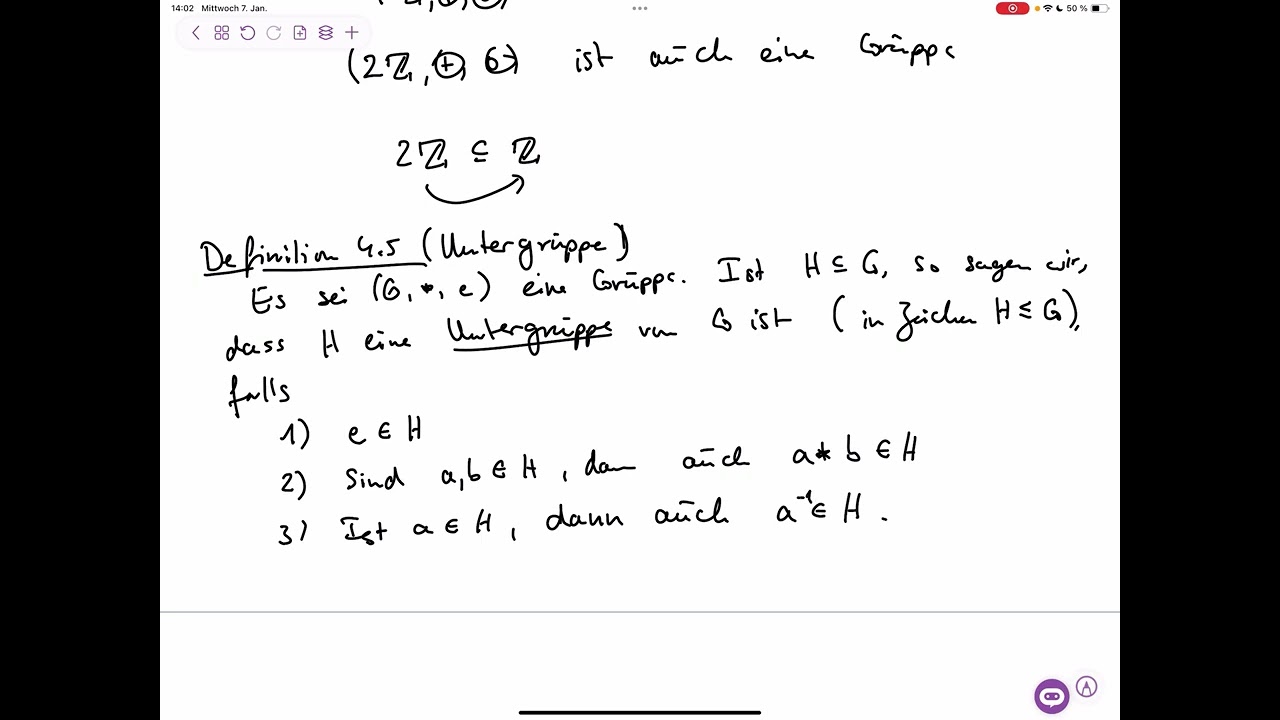 14:02 Mittwoch 7. Jan.
50 %
(2ℤ, ⊕, 0) ist auch eine Gruppe
2ℤ ⊆ ℤ
Definition 4.5 (Untergruppe)
Es sei (G, *, e) eine Gruppe. Ist H ⊆ G, so sagen wir,
dass H eine Untergruppe von G ist (in Zeichen H ≤ G),
falls
1) e ∈ H
2) Sind a,b ∈ H, dann auch a * b ∈ H
3) Ist a ∈ H, dann auch a⁻¹ ∈ H.